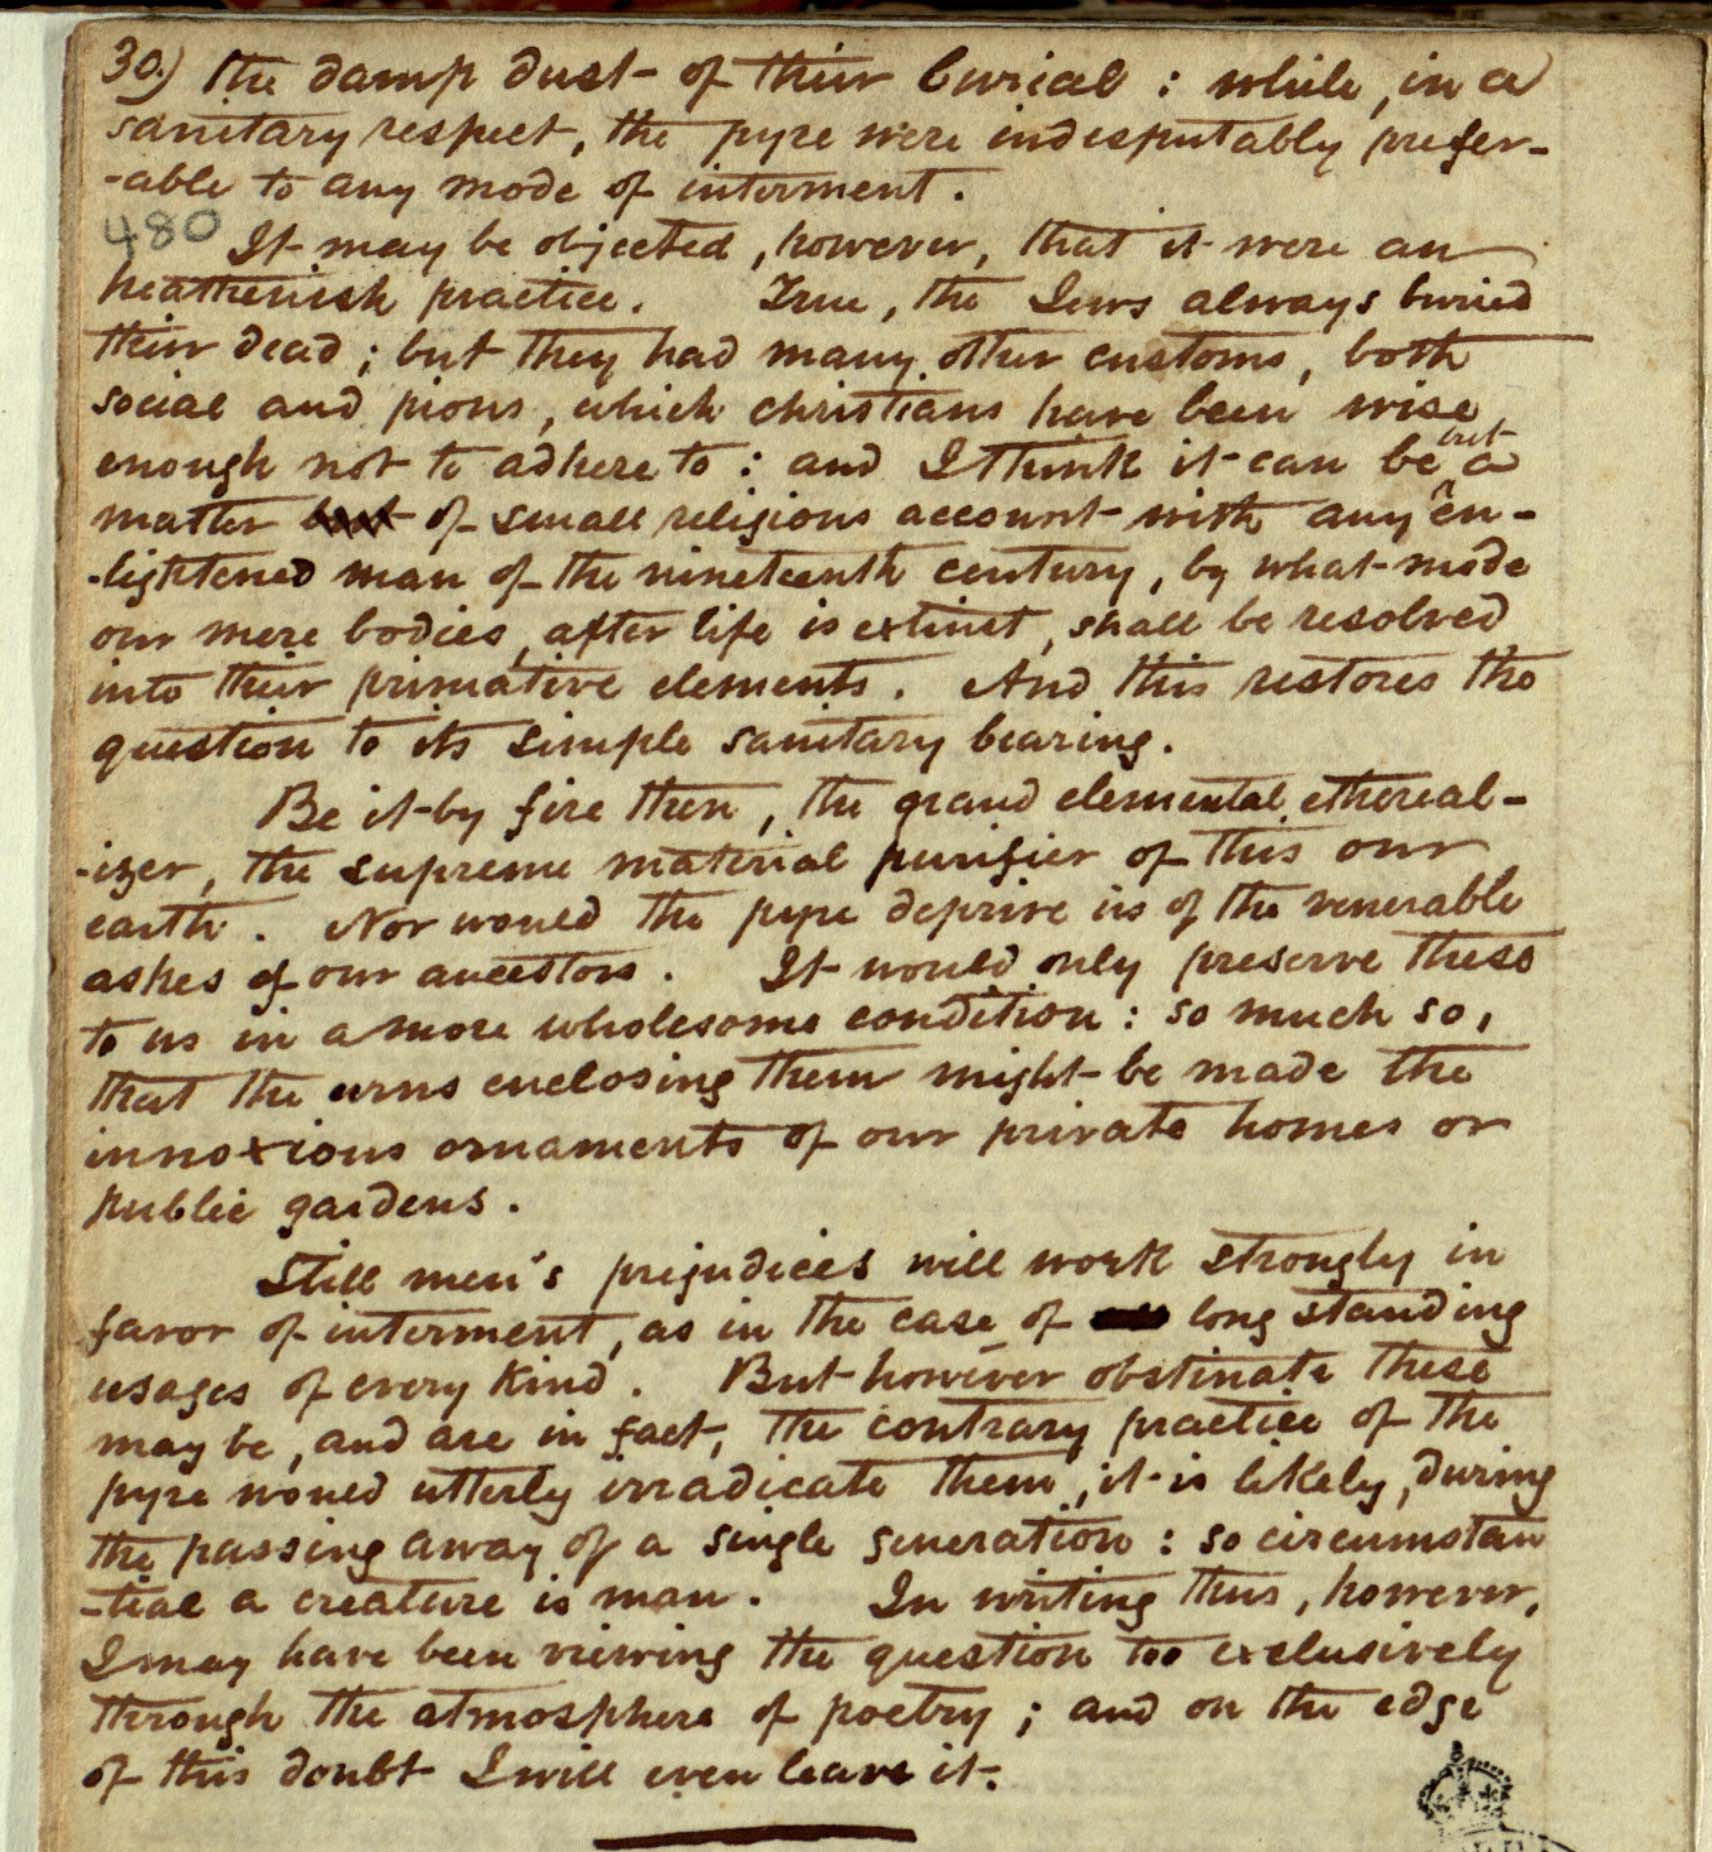 30.) the damp dust of their burial : while, in a
sanitary respect, the pyre were indisputably prefer-
-able to any mode of interment.
480
It may be objected, however, that it were an
heathenish practice. True, the Jews always buried
their dead ; but they had many other customs, both
social and pious, which christians have been wise
enough not to adhere to : and I think it can be but a
matter but of small religious account with any en-
-lightened man of the nineteenth century, by what mode
our mere bodies, after life is extinct, shall be resolved
into their primative elements. And this restores the
question to its simple sanitary bearing.
Be it by fire then, the grand elemental ethereal-
-izer, the supreme material purifier of this our
earth. Nor would the pyre deprive us of the venerable
ashes of our ancestors. It would only preserve these
to us in a more wholesome condition : so much so,
that the urns enclosing them might be made the
innoxious ornaments of our private homes or
public gardens.
Still men's prejudices will work strongly in
favor of interment, as in the case of long standing
usages of every kind. But however obstinate these
may be, and are in fact, the contrary practice of the
pyre would utterly irradicate them, it is likely, during
the passing away of a single generation : so circumstan
-tial a creature is man. In writing thus, however,
I may have been viewing the question too exclusively
through the atmosphere of poetry ; and on the edge
of this doubt I will even leave it.